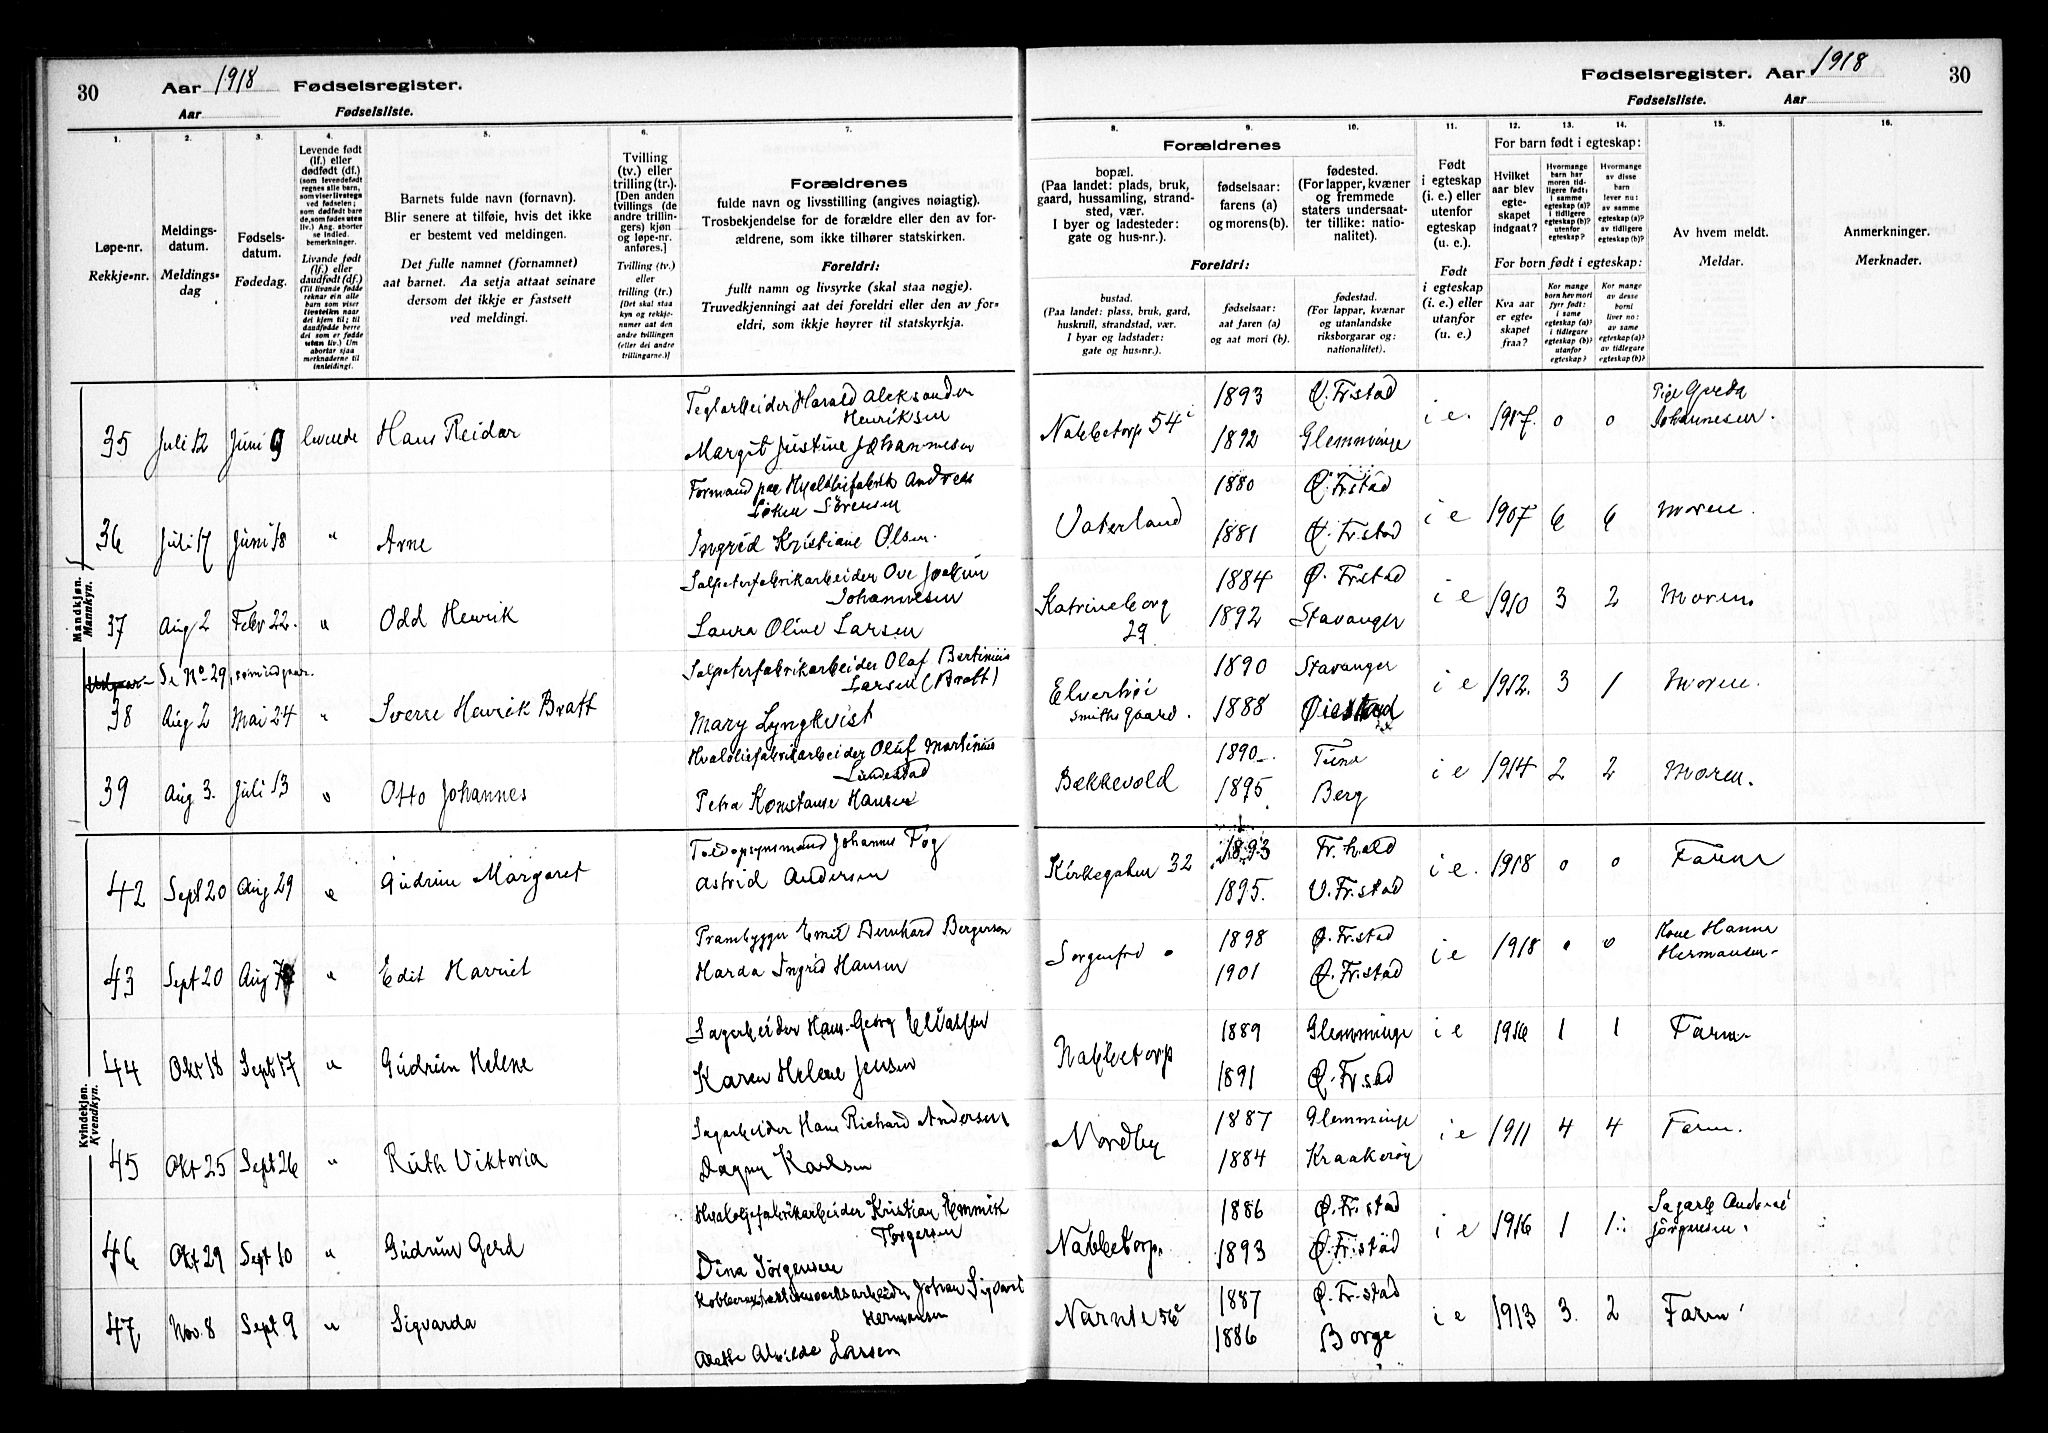 30 Aar 1918 Fødselsregister.
Aar Fødselsliste.
Fødselsregister. Aar 1918 30
Fødselsliste. Aar
1. 2. 3. 4. 5. 6. 7.
8. 9. 10. 11. 12. 13. 14. 15. 16.
Løpe-nr.
Rekkje-nr.
Meldings-
datum.
Meldings-
dag
Fødsels-
datum.
Fødedag.
Levende født
(lf.) eller
dødfødt (df.)
(som levendefødt
regnes alle barn,
som viser livstegn
ved fødselen;
som dødfødt bare
de, som fødes uten
liv.) Ang. aborter
se indled.
bemerkninger.
Livande født
(lf.) eller
daudfødt (df.)
(Til livande fødde
reknar ein alle
born som viser
livsteikn naar
dei kjem til; til
daudfødde berre
dei som er fødde
utan liv.) Um
abortar sjaa
merknaderne til
innleidingi.
Barnets fulde navn (fornavn).
Blir senere at tilføie, hvis det ikke
er bestemt ved meldingen.
Det fulle namnet (fornamnet)
aat barnet. Aa setja attaat seinare
dersom det ikkje er fastsett
ved meldingi.
Tvilling
(tv.) eller
trilling (tr.).
[Den anden
tvillings (de
andre trillin-
gers) kjøn
og løpe-nr.
anføres.]
Tvilling (tv.)
eller
trilling (tr.)
[Det skal staa
kyn og rekkje-
numer aat den
andre tvillingen
(eller dei andre
trillingarne.)]
Forældrenes
fulde navn og livsstilling (angives nøiagtig).
Trosbekjendelse for de forældre eller den av for-
ældrene, som ikke tilhører statskirken.
Foreldri:
fullt namn og livsyrke (skal staa nøgje).
Truvedkjenningi aat dei foreldri eller den av for-
eldri, som ikkje høyrer til statskyrkja.
Forældrenes
bopæl.
(Paa landet: plads, bruk,
gaard, hussamling, strand-
sted, vær.
I byer og ladesteder:
gate og hus-nr.).
fødselsaar:
farens (a)
og morens (b).
fødested.
(For lapper, kvæner
og fremmede
staters undersaat-
ter tillike: natio-
nalitet).
Foreldri:
bustad.
(Paa landet: plass, bruk, gard,
huskrull, strandstad, vær.
I byar og ladstader:
gate og hus-nr.).
fødselsaar:
aat faren (a)
og aat mori (b).
fødestad.
(For lappar, kvænar
og utanlandske
riksborgarar og:
nationalitet).
Født
i egteskap
(i. e.) eller
utenfor
egteskap
(u. e.).
Født
i egteskap
(i. e.) eller
utanfor
(u. e.)
For barn født i egteskap:
Hvilket
aar blev
egte-
skapet
indgaat?
Hvormange
barn har
moren tid-
ligere født,
i samme
egteskap (a)?
i tidligere
egteskap (b)?
utenfor
egteskap?
Hvormange
av disse
barn
lever nu:
av samme
egteskap (a)?
av tidligere
egteskap (b)?
For born født i egteskap:
Kva aar
er egte-
skapet
fraa?
Kor mange
born hev mori
fyrr født:
i same
egteskap (a)?
i tidlegare
egteskap (b)?
utanfor
egteskap?
Kor mange
av desse
born
liver no:
av same
egteskap (a)?
av tidlegare
egteskap (b)?
Av hvem meldt.
Meldar.
Anmerkninger.
Merknader.
Mandkjøn.
Mannkyn.
35 Juli 12 Juni 9 levende Hans Reidar
Teglarbeider Harald Aleksander
Henriksen
Margit Justine Johannesen
Nabbetorp 54 1893 V. Fr.stad i e. 1917. 0 0 Pige Gerda
1892 Glemminge Johannesen.
36 Juli 17 Juni 18 " Arne
Formand paa Hvaloliefabrik Andreas
Løken Sörensen
Ingrid Kristiane Olsen.
Vaterland 1880 Ø. Fr.stad i e 1907 6 6 moren.
1881 Ø. Fr.stad
37 Aug 2 Febr 22. " Odd Henrik
Salpeterfabrikarbeider Ove Joakim
Johannesen
Laura Oline Larsen
Katrineborg 29 1884 Ø. Fr.stad i e 1910 3 2 Moren
1892 Stavanger
Se No 29, som utgaar.
38 Aug 2 Mai 24 " Sverre Henrik Bratt
Salpeterfabrikarbeider Olaf Bertinius
Larsen (Bratt)
Mary Lyngkvist
Elverhöi Smiths gaard. 1890 Stavanger i e 1912. 3 1 moren.
1888 Øiestad
39 Aug 3. Juli 13 " Otto Johannes
Hvaloliefabrikarbeider Oluf Martinius
Lundestad
Petra Konstanse Hansen
Bækkevold 1890 Tune i e 1914 2 2 Moren.
1895 Berg
Kvindekjøn.
Kvendkyn.
42 Sept 20 Aug 29 " Gudrun Margaret
Toldopsynsmand Johannes Fög
Astrid Andersen
Kirkegaten 32 1893 Fr.hald i e. 1918 0 0 Faren
1895. V. Fr.stad
43 Sept 20 Aug " Edit Harriet
Prambygger Emil Bernhard Bergersen
Harda Ingrid Hansen
Sorgenfri 1898 Ø. Fr.stad i e 1918 0 0 Kone Hanna
1901 Ø. Fr.stad Hermansen
44 Okt 18 Sept 17 " Gudrun Helene
Sagarbeider Hans Georg Eliassen
Karen Helene Jensen
Nabbetorp 1889 Glemminge i e 1916 1 1 Faren
1891 Ø. Fr.stad
45 Okt 25 Sept 26 " Ruth Viktoria
Sagarbeider Hans Richard Andersen
Dagny Karlsen
Nordby 1887 Glemminge i e 1911 4 4 Faren.
1884 Kraakeröy
46 Okt 29 Sept 10 " Gudrun Gerd
Hvaloljefabrikarbeider Kristian Emmik
Torgersen
Dina Jörgensen
Nabbetorp. 1886 Ø. Fr.stad i e 1916 1 1 Sagarb Andreas
1893 Ø. Fr.stad Jörgensen.
47 Nov. 8 Sept 9 " Sigvarda
Johan Sigvart
Hermansen
Alvilde Larsen
56 1887 Ø. Fr.stad i e 1913 3. 2 Faren
1886 Borge